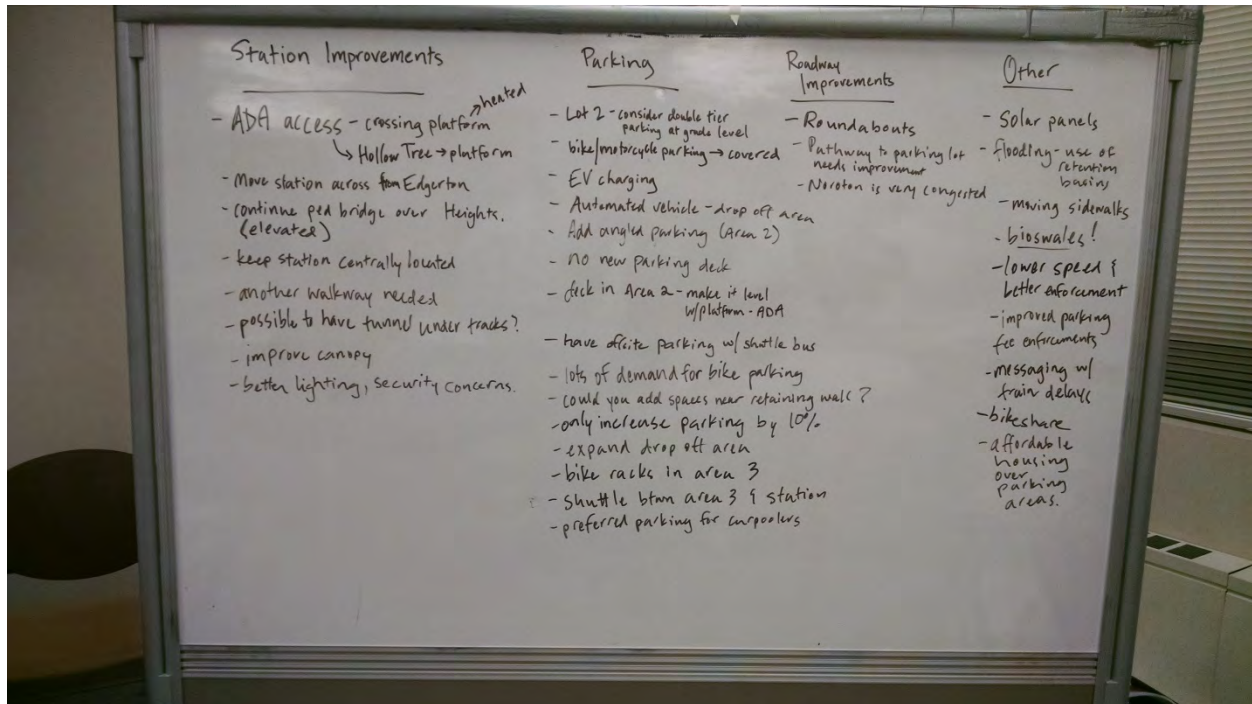 Station Improvements
- ADA access - crossing platform → heated
↳ Hollow Tree → platform
- Move station across from Edgerton
- continue ped bridge over Heights.
(elevated)
- keep station centrally located
- another walkway needed
- possible to have tunnel under tracks?
- improve canopy
- better lighting, security concerns.
Parking
- Lot 2 - consider double tier
parking at grade level
- bike/motorcycle parking → covered
- EV charging
- Automated vehicle - drop off area
- Add angled parking (Area 2)
- no new parking deck
- deck in Area 2 - make it level
w/platform - ADA
- have offsite parking w/ shuttle bus
- lots of demand for bike parking
- could you add spaces near retaining wall?
- only increase parking by 10%
- expand drop off area
- bike racks in area 3
- shuttle btwn area 3 & station
- preferred parking for carpoolers
Roadway
Improvements
- Roundabouts
- Pathway to parking lot
needs improvement
- Noroton is very congested
Other
- Solar panels
- flooding - use of
retention
basins
- moving sidewalks
- bioswales!
- lower speed &
better enforcement
- improved parking
fee enforcements
- messaging w/
train delays
- bikeshare
- affordable
housing
over
parking
areas.